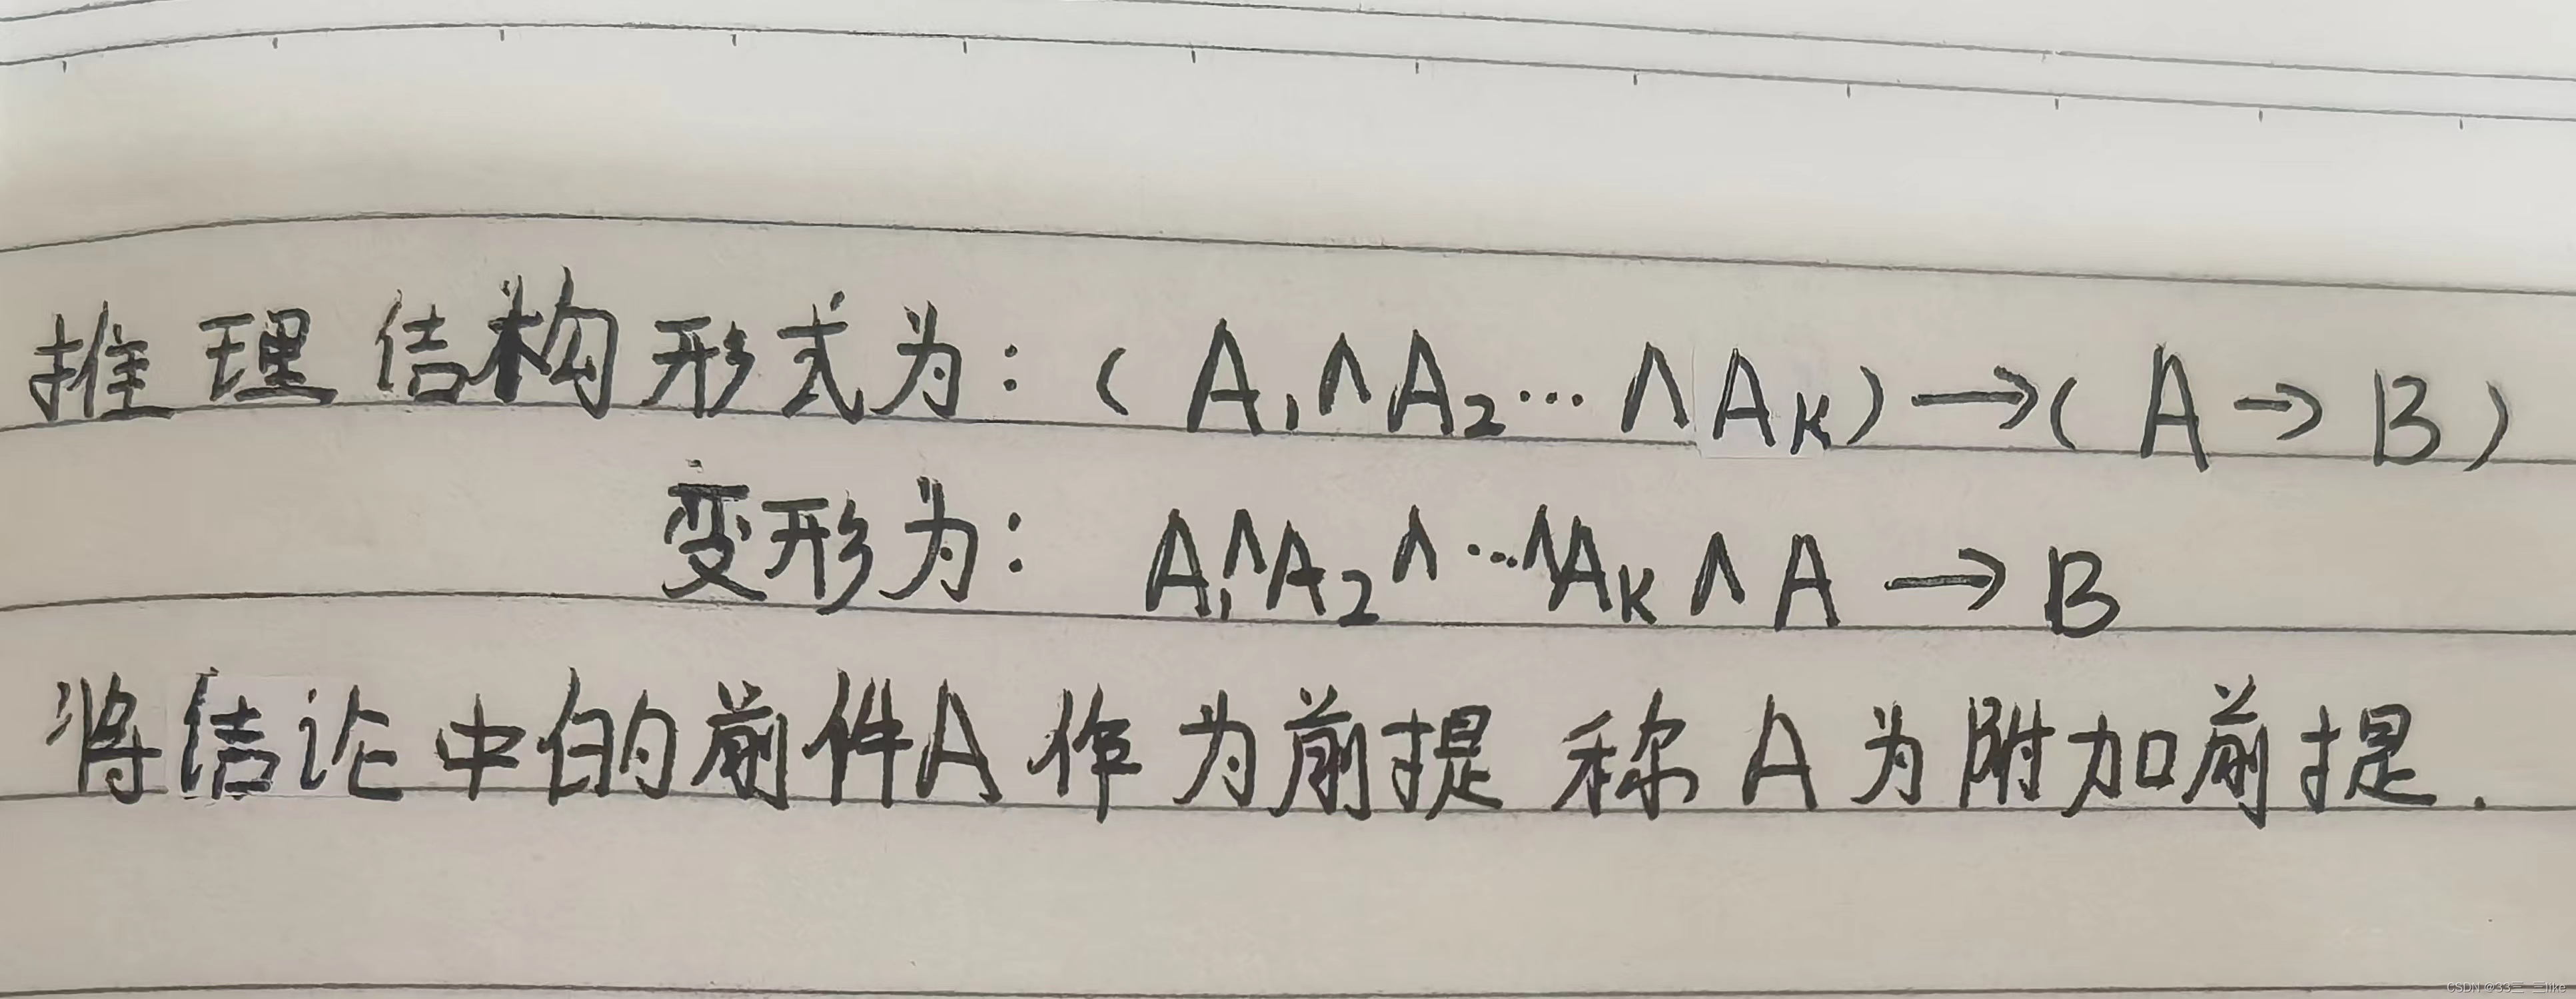 推理结构形式为：（A₁∧A₂…∧Aₖ）→（A→B）
变形为：A₁∧A₂∧…∧Aₖ∧A→B
将结论中的前件A作为前提 称A为附加前提.